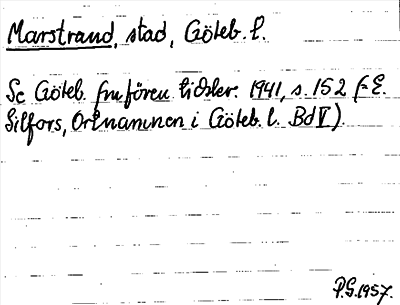 Marstrand, stad, Göteb. l.
Se Göteb. fmfören. tidskr. 1941, s. 152 (= E.
Gilfors, Ortnamnen i Göteb. l. Bd V)
P.G. 1957.